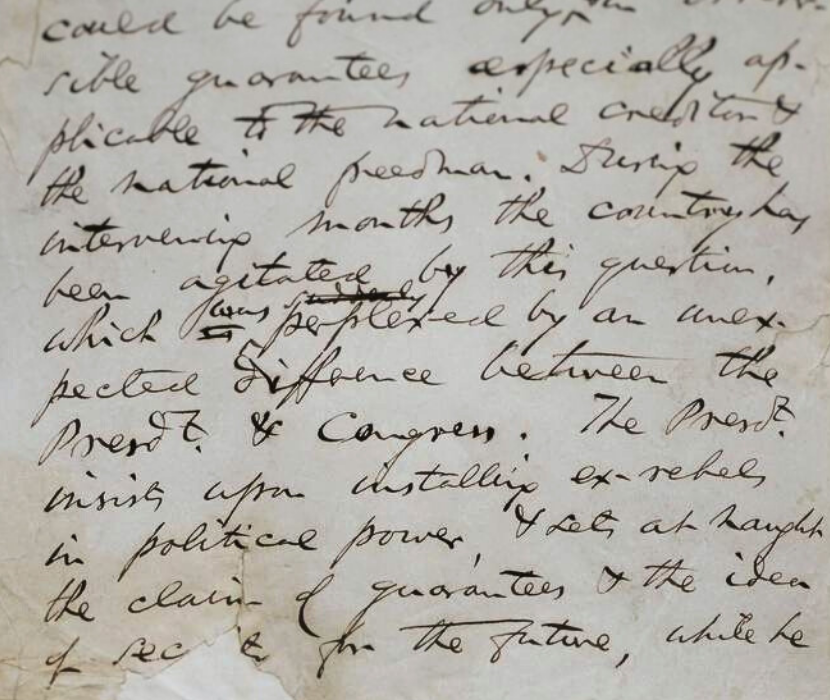 could be found only in
sible guarantees especially ap-
plicable to the national creditor &
the national freedman. During the
intervening months the country has
been agitated by this question,
which was perplexed by an unex-
pected difference between the
Presdt. & Congress. The Presdt.
insists upon installing ex-rebels
in political power, & sets at naught
the claim of guarantees & the idea
of sec ty for the future, while he